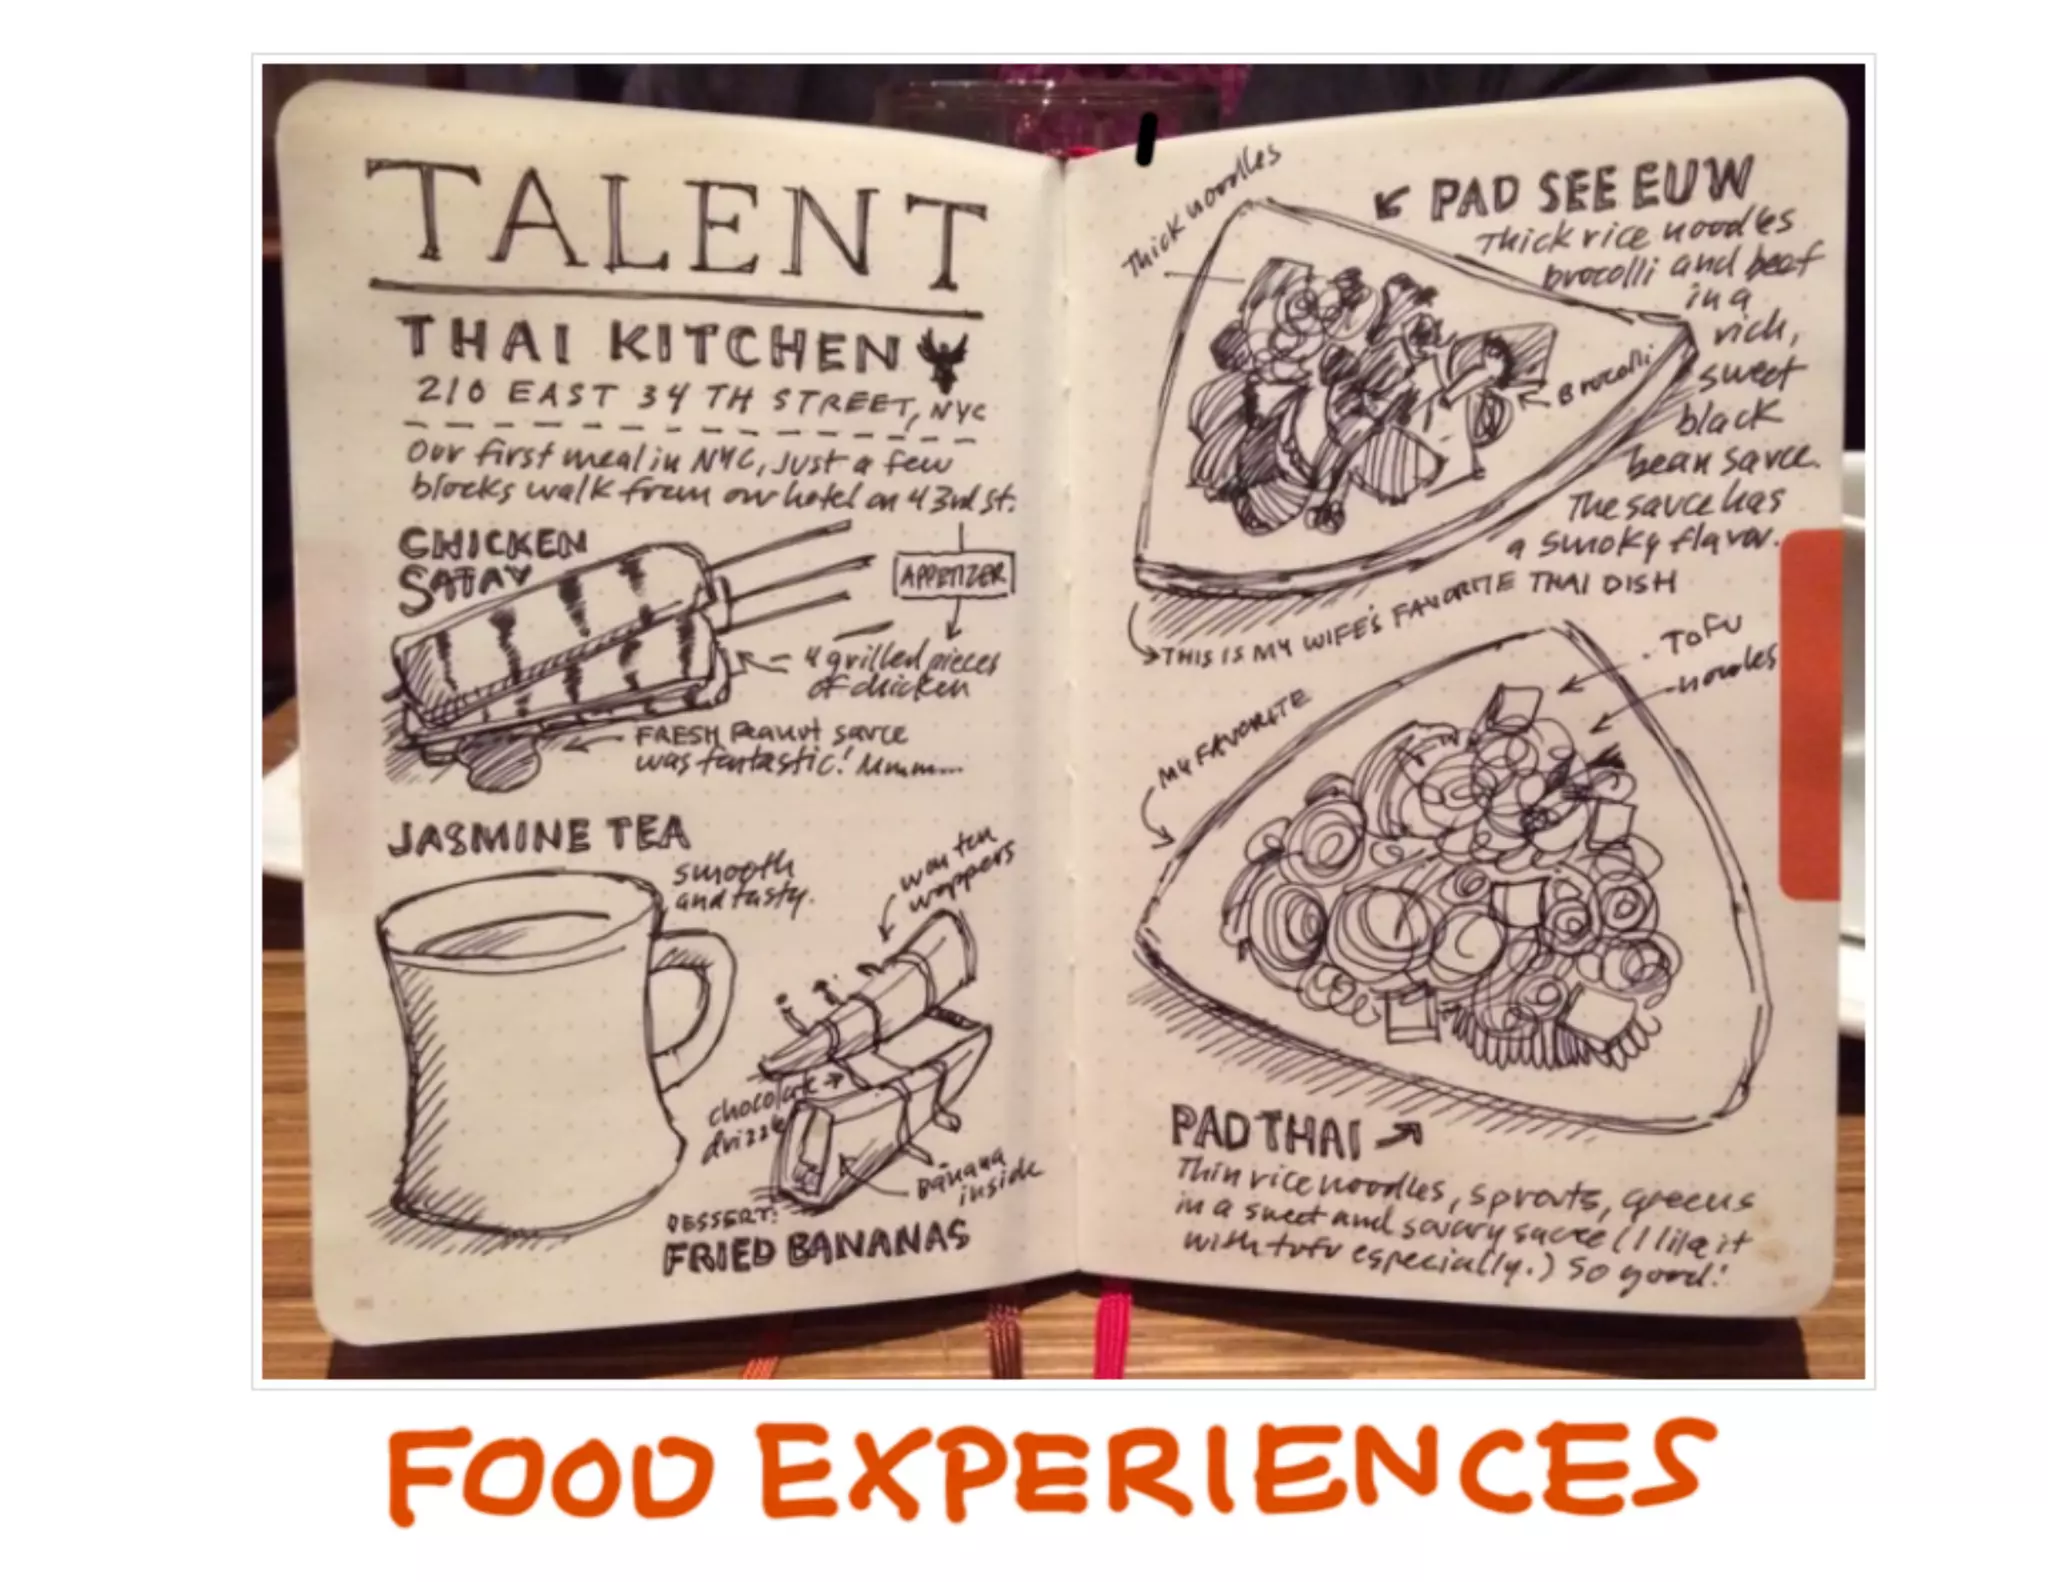 TALENT
THAI KITCHEN
210 EAST 34TH STREET, NYC
Our first meal in NYC, just a few
blocks walk from our hotel on 43rd St.
CHICKEN
SATAY
APPETIZER
4 grilled pieces
of chicken
FRESH Peanut sauce
was fantastic! Mmmm...
JASMINE TEA
smooth
and tasty.
wan ton
wrappers
chocolate
drizzle
Banana
inside
DESSERT:
FRIED BANANAS
Thick noodles
PAD SEE EUW
Thick rice noodles
brocolli and beef
in a
rich,
sweet
black
bean sauce.
The sauce has
a smoky flavor.
Brocolli
THIS IS MY WIFE'S FAVORITE THAI DISH
TOFU
noodles
MY FAVORITE
PAD THAI
Thin rice noodles, sprouts, greens
in a sweet and savory sauce (I like it
with tofu especially.) So good!
FOOD EXPERIENCES